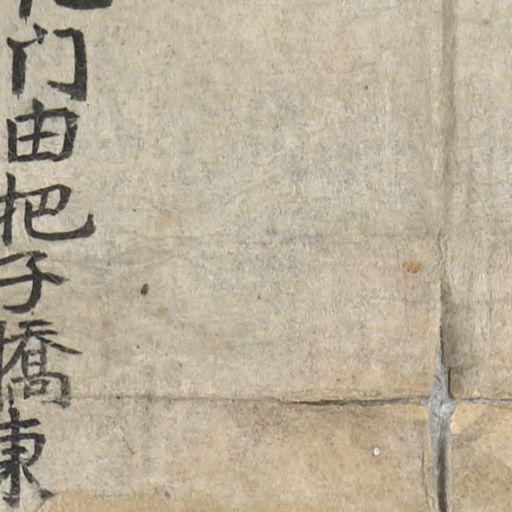 门由把子橋東